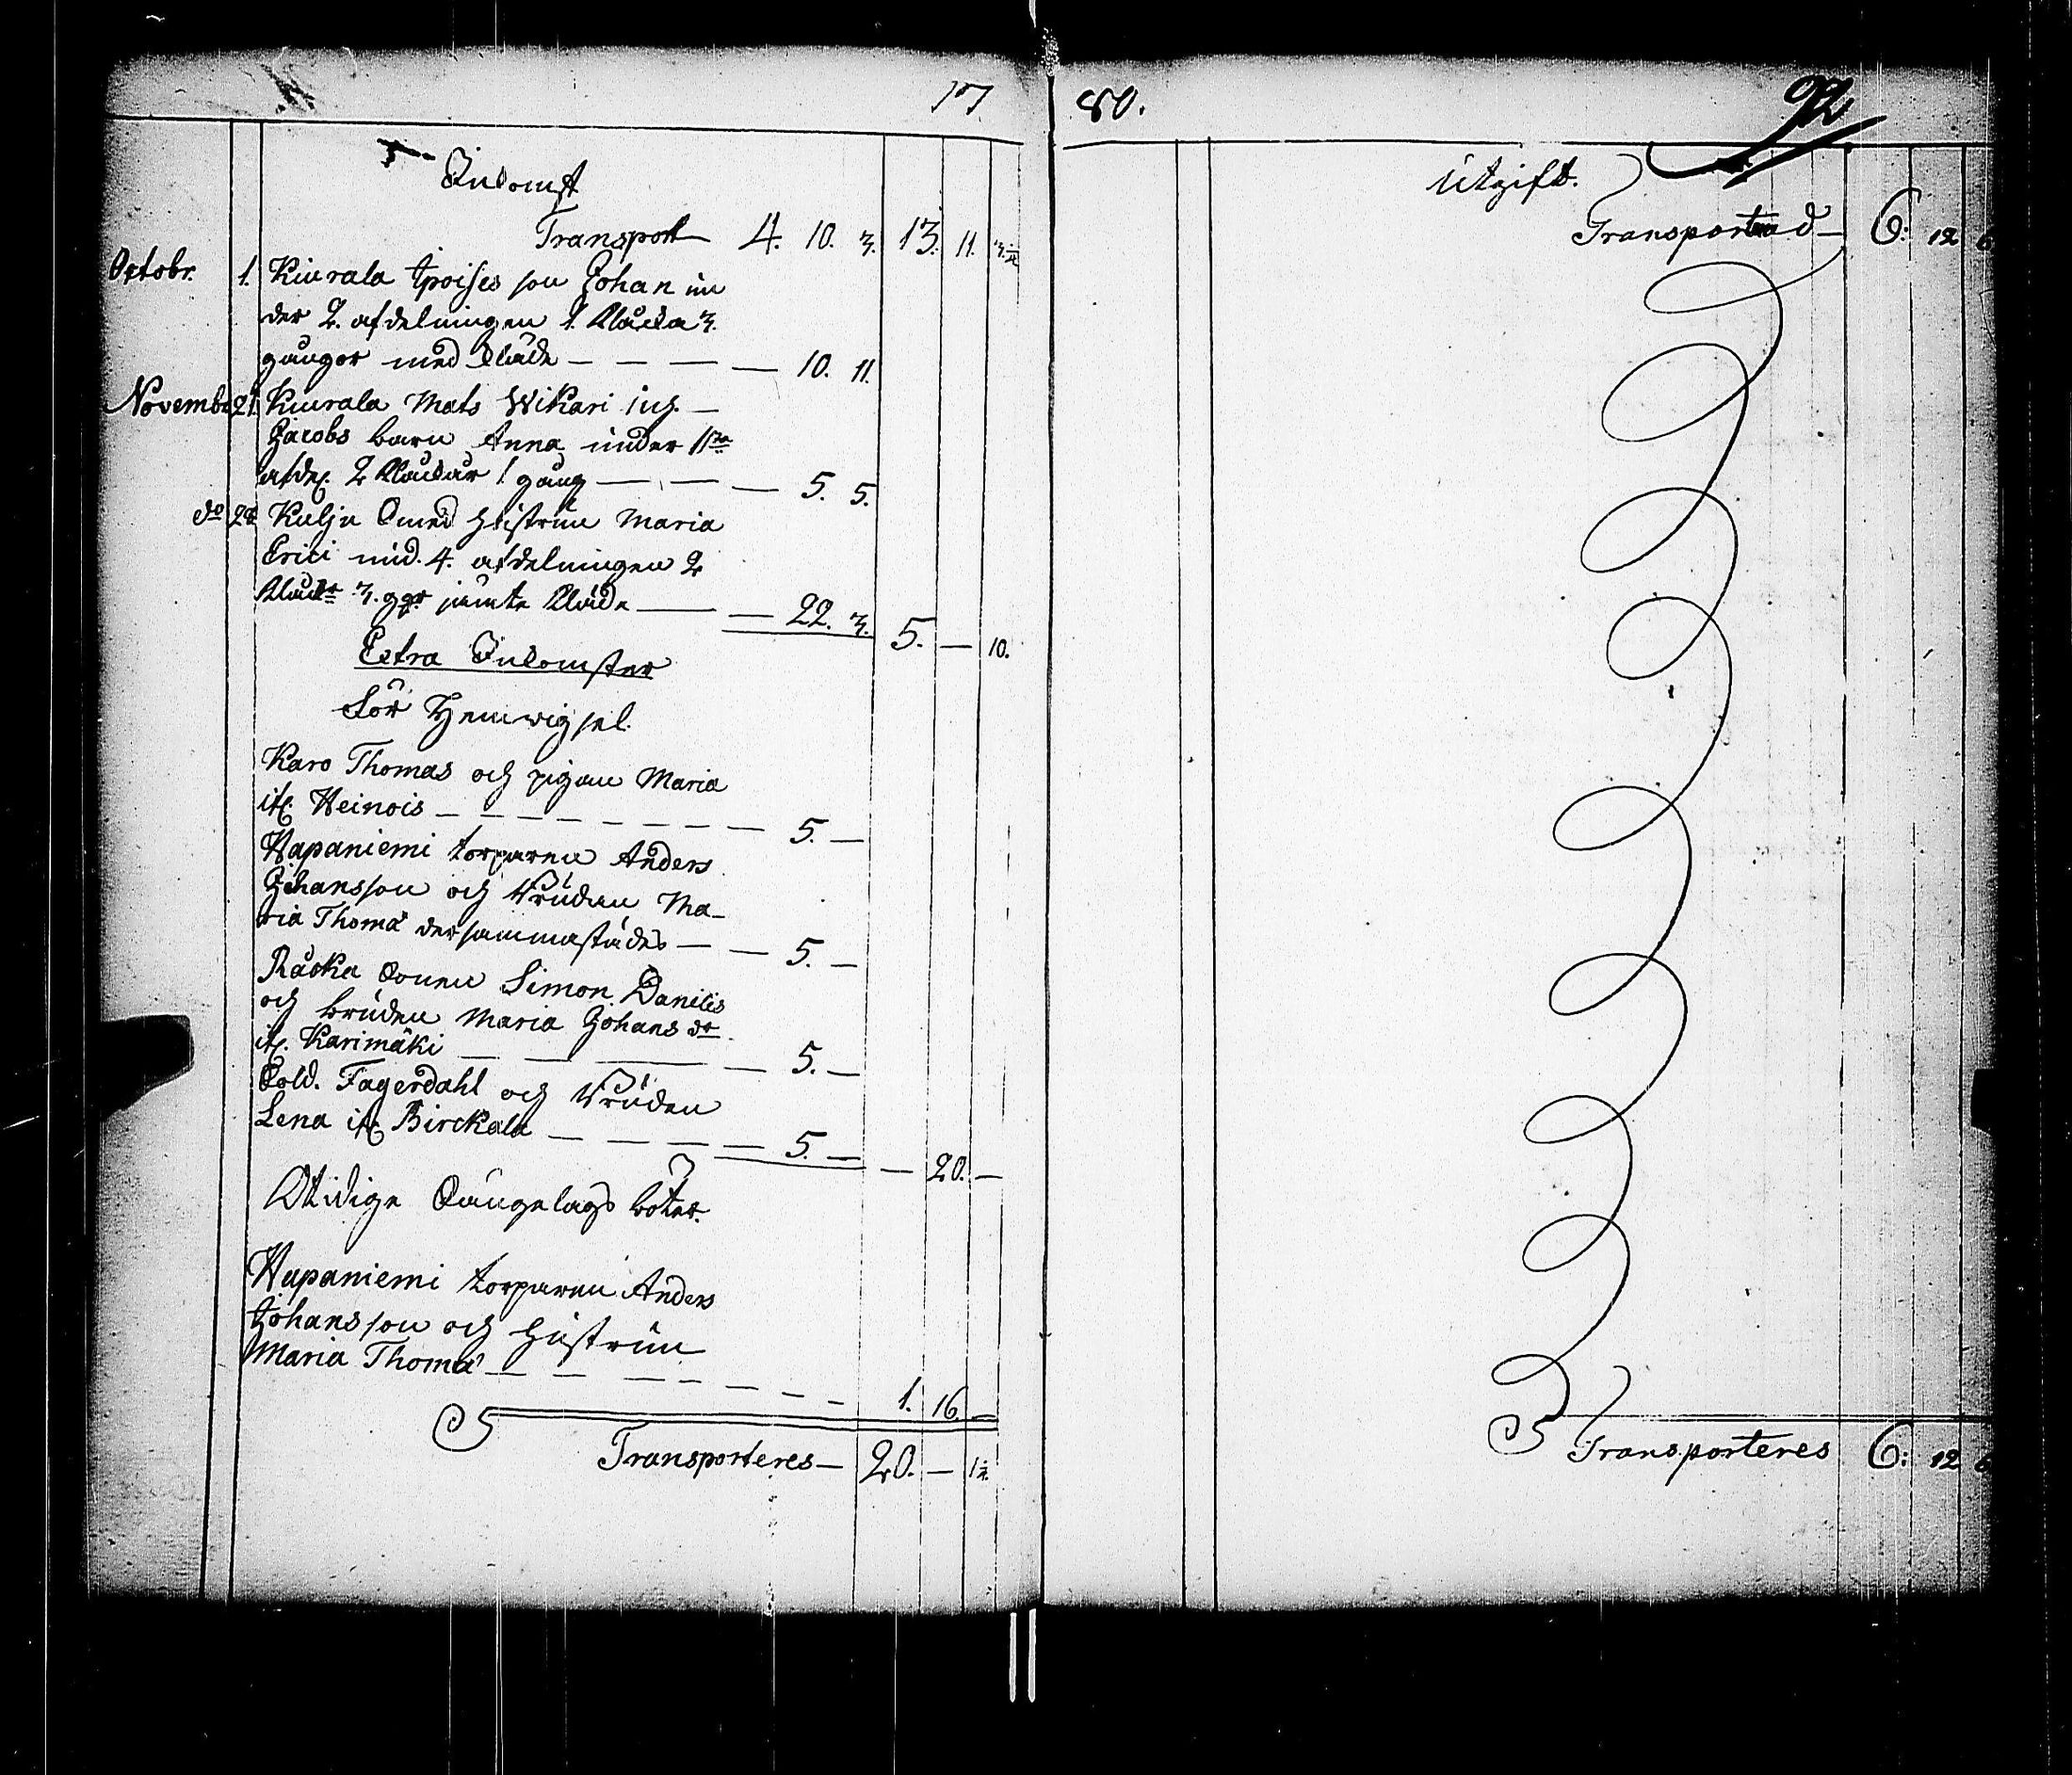 17
Inkomst
Transport 4. 10. 3. 13. 11. 3 1/2
Octobr. 1. Kiurala son Johan un
der 2. afdelningen 1. klåcka 3.
gånger med kläde — — — — 10. 11.
Novembr 21. Kiurala Mats Wikari inh. —
Jacobs barn Anna under 11ta
afdel. 2 klåckar 1 gång — — — 5. 5.
do 28 Kulju Smed hustrun Maria
Erici und. 4. afdelningen 2
klåckr 3. ggr jämte kläde — — 22. 3. 5. — 10.
Extra Inkomster
För Hemwigsel.
Karo Thomas och pigan Maria
ifr. Heinois — — — — — — — — 5. —
Hapaniemi torparen Anders
Johansson och Bruden Ma-
ria Thomæ dersammastädes — — 5. —
Råcka Sonen Simon Daniels
och bruden Maria Johans dr
ifr. Karimäki — — — — 5. —
Sold. Fagerdahl och Bruden
Lena ifr. Birckala — — — — — 5. — — 20. —
Otidige Sängelags böter.
Hapaniemi torparen Anders
Johansson och hustrun
Maria Thomæ — — — — — — — — 1. 16. —
Transporteres — 20. — 1 1/2.
80. 92
Utgift.
Transporterad — 6: 12 6
Transporteres 6: 12 6